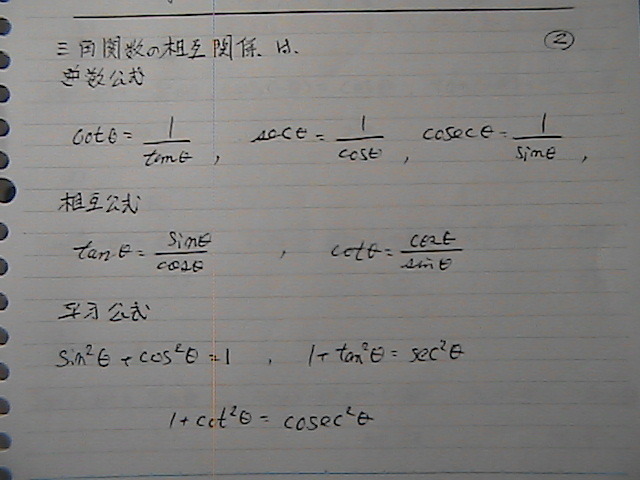 三角関数の相互関係は、 ②
逆数公式
cotθ = 1/tanθ , secθ = 1/cosθ , cosecθ = 1/sinθ ,
相互公式
tanθ = sinθ/cosθ , cotθ = cosθ/sinθ
平方公式
sin²θ + cos²θ = 1 , 1 + tan²θ = sec²θ
1 + cot²θ = cosec²θ